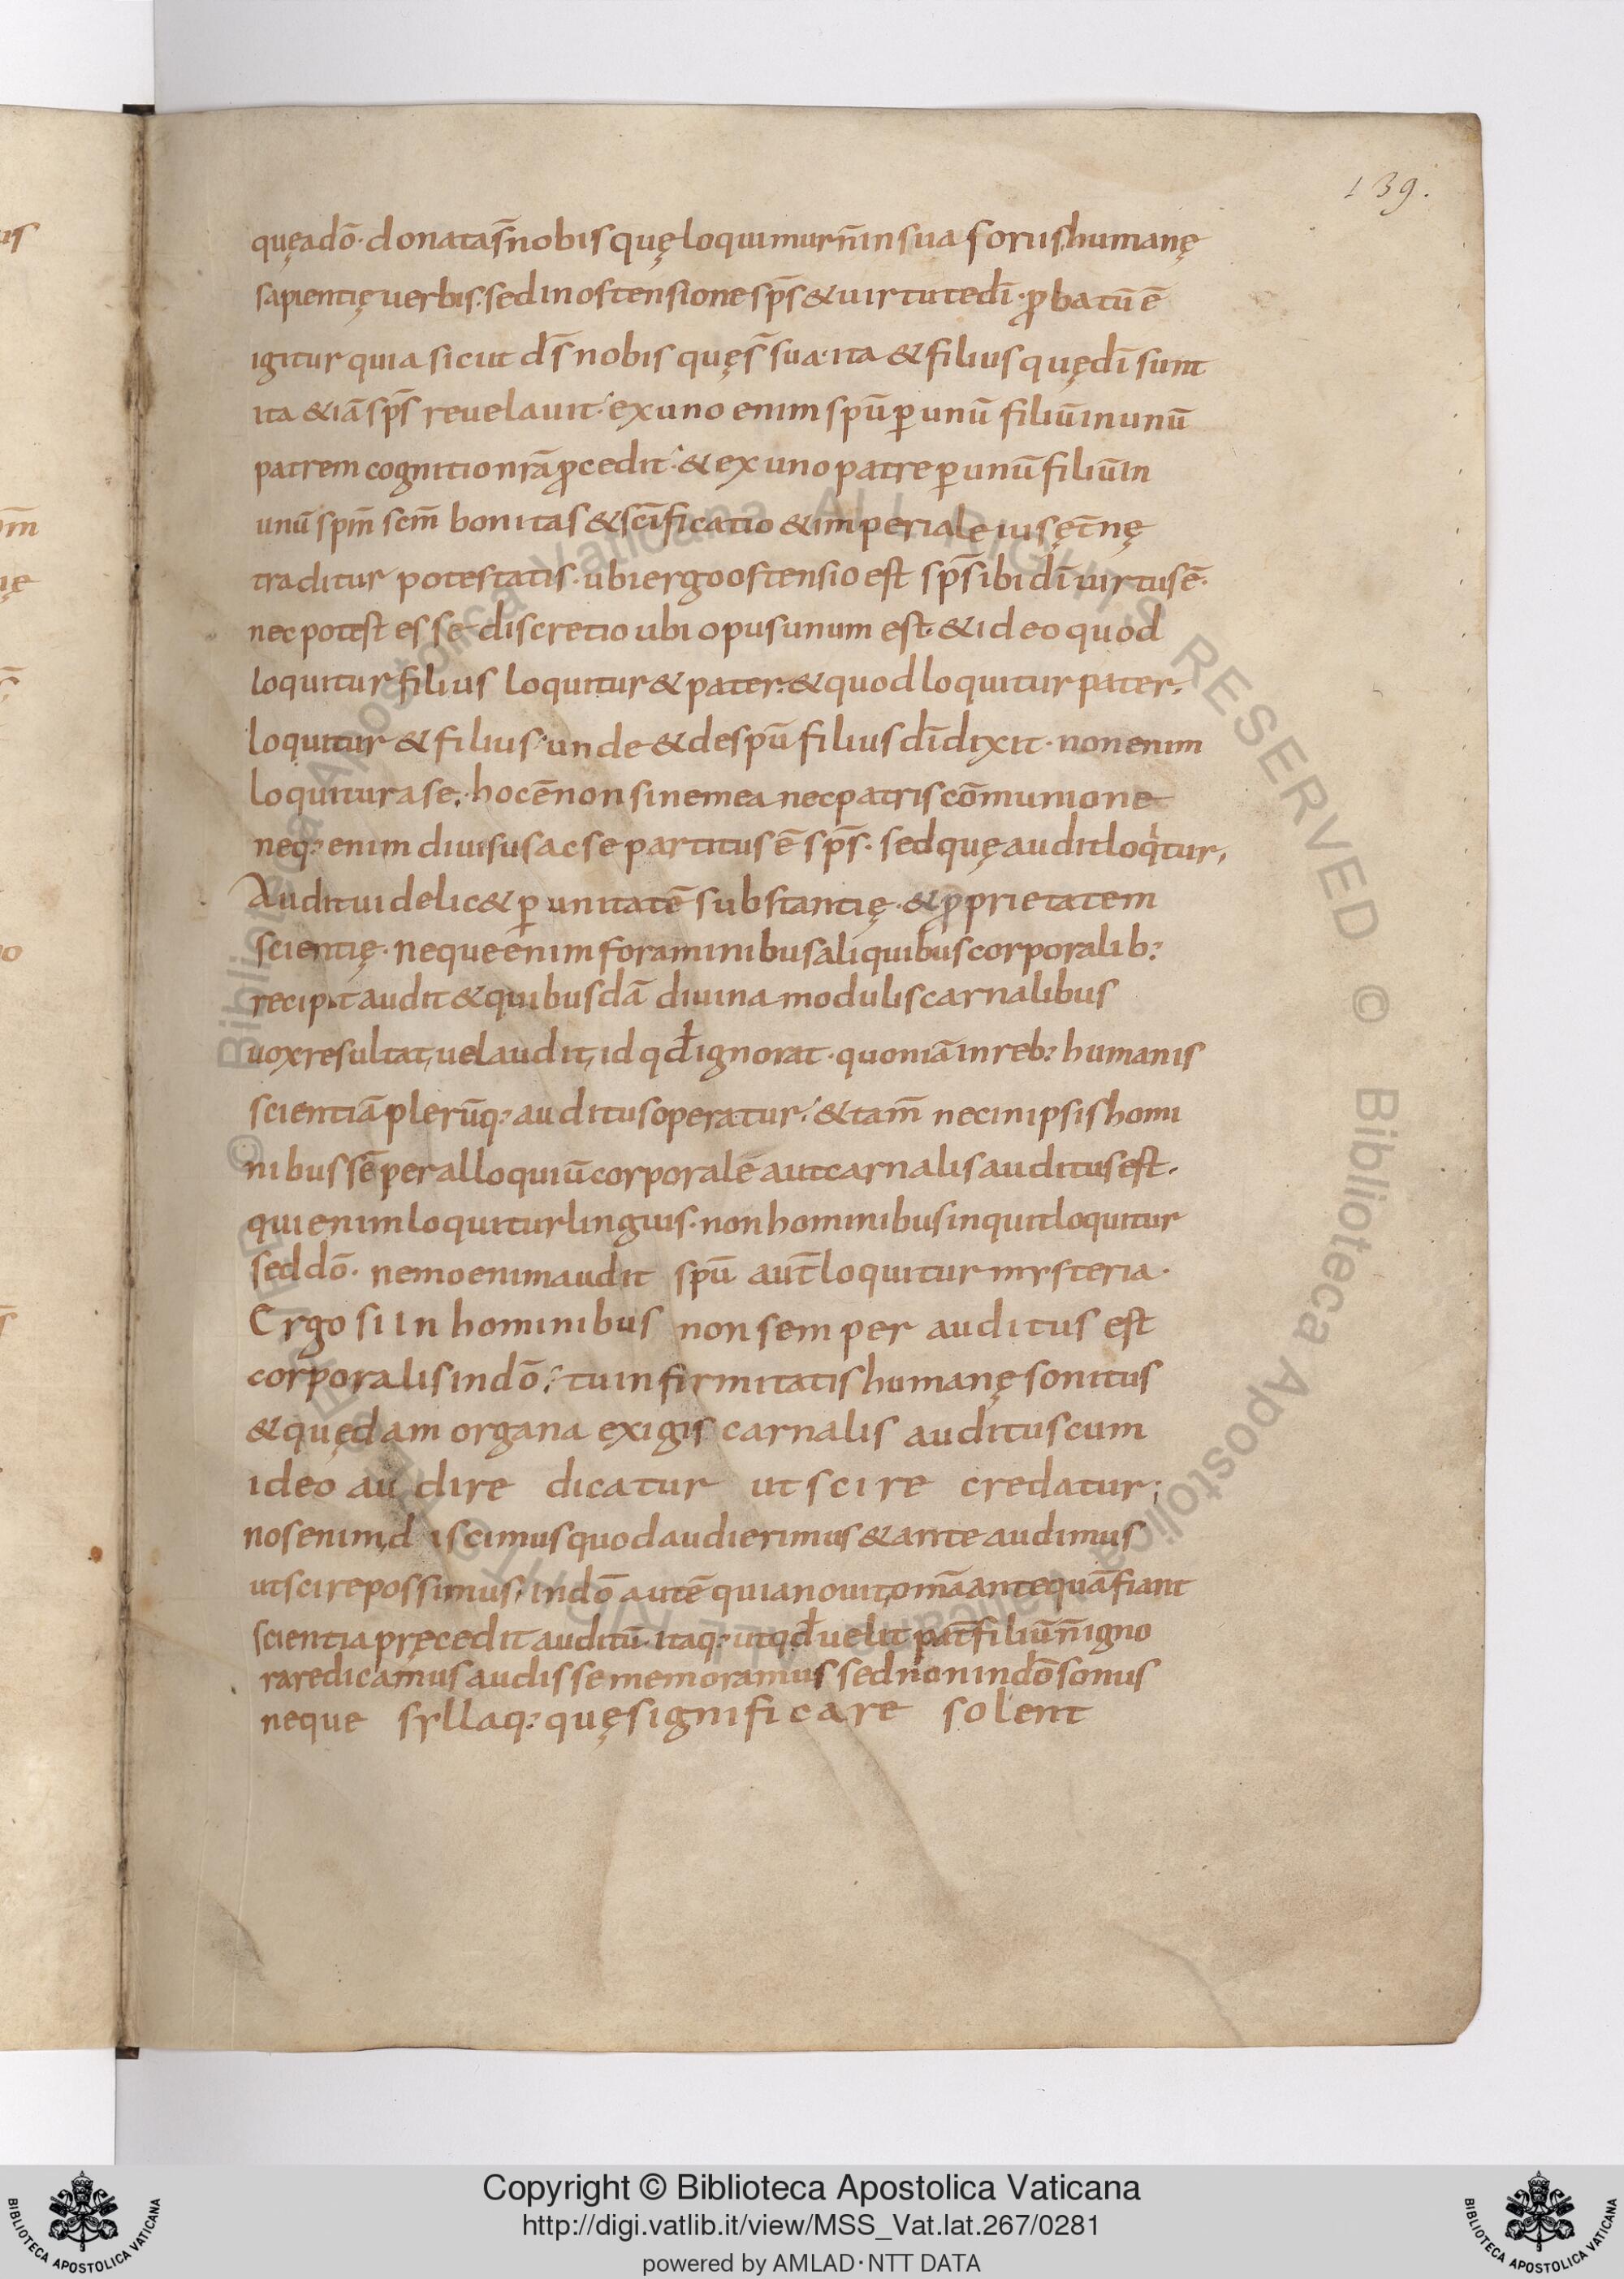 139.
quę a dō· donata s̄ nobis quę loquimur n̄ in suasoriis humanę
sapientię uerbis· sed in ostensione sp̄s & uirtute dī· ꝓbatū ē
igitur quia sicut d̄s nobis quę s̄ sua· ita & filius quę dī sunt
ita &iā sp̄s reuelauit· ex uno enim spū ꝑ unū filiū in unū
patrem cognitio nr̄a ꝓcedit· & ex uno patre ꝑ unū filiū in
unū spm̄ scm̄ bonitas & sc̄ificatio & imperiale ius ęt̄nę
traditur potestatis· ubi ergo ostensio est sp̄s ibi dī uirtus ē·
nec potest esse discretio ubi opus unum est· & ideo quod
loquitur filius loquitur & pater· & quod loquitur pater·
loquitur & filius· unde & de spū filius dī dixit· non enim
loquitur a se· hoc ē non sine mea nec patris cōmunione
neq; enim diuisus ac separtitus ē sp̄s· sed quę audit loqitur,
Audit uidelic& ꝑ unitatē substantię· & ꝓprietatem
scientię· neque enim foraminibus aliquibus corporalib;
recipit audit & quibusdā diuina modulis carnalibus
uox resultat, uel audit, id qđ ignorat· quoniā in reb; humanis
scientiā plerūq; auditus operatur· & tam̄ nec in ipsis homi
nibus sēper alloquiū corporale aut carnalis auditus est·
qui enim loquitur linguis· non hominibus inquit loquitur
sed dō· nemo enim audit spū aut̄ loquitur mysteria·
Ergo si in hominibus non semper auditus est
corporalis in dō· tu infirmitatis humanę sonitus
& quędam organa exigis carnalis auditus cum
ideo audire dicatur ut scire credatur;
nos enim, d iscimus quod audierimus & ante audimus
ut scire possimus· in dō autē quia nouit, om̄a antequā fiant
scientia pręcedit auditū· itaq; ut qđ uelit pat̄ filiū n̄ igno
rare dicamus audisse memoramus sed non in dō sonus
neque syllaq; quę significare solent
Copyright © Biblioteca Apostolica Vaticana
http://digi.vatlib.it/view/MSS_Vat.lat.267/0281
powered by AMLAD·NTT DATA
BIBLIOTECA APOSTOLICA VATICANA
BIBLIOTECA APOSTOLICA VATICANA